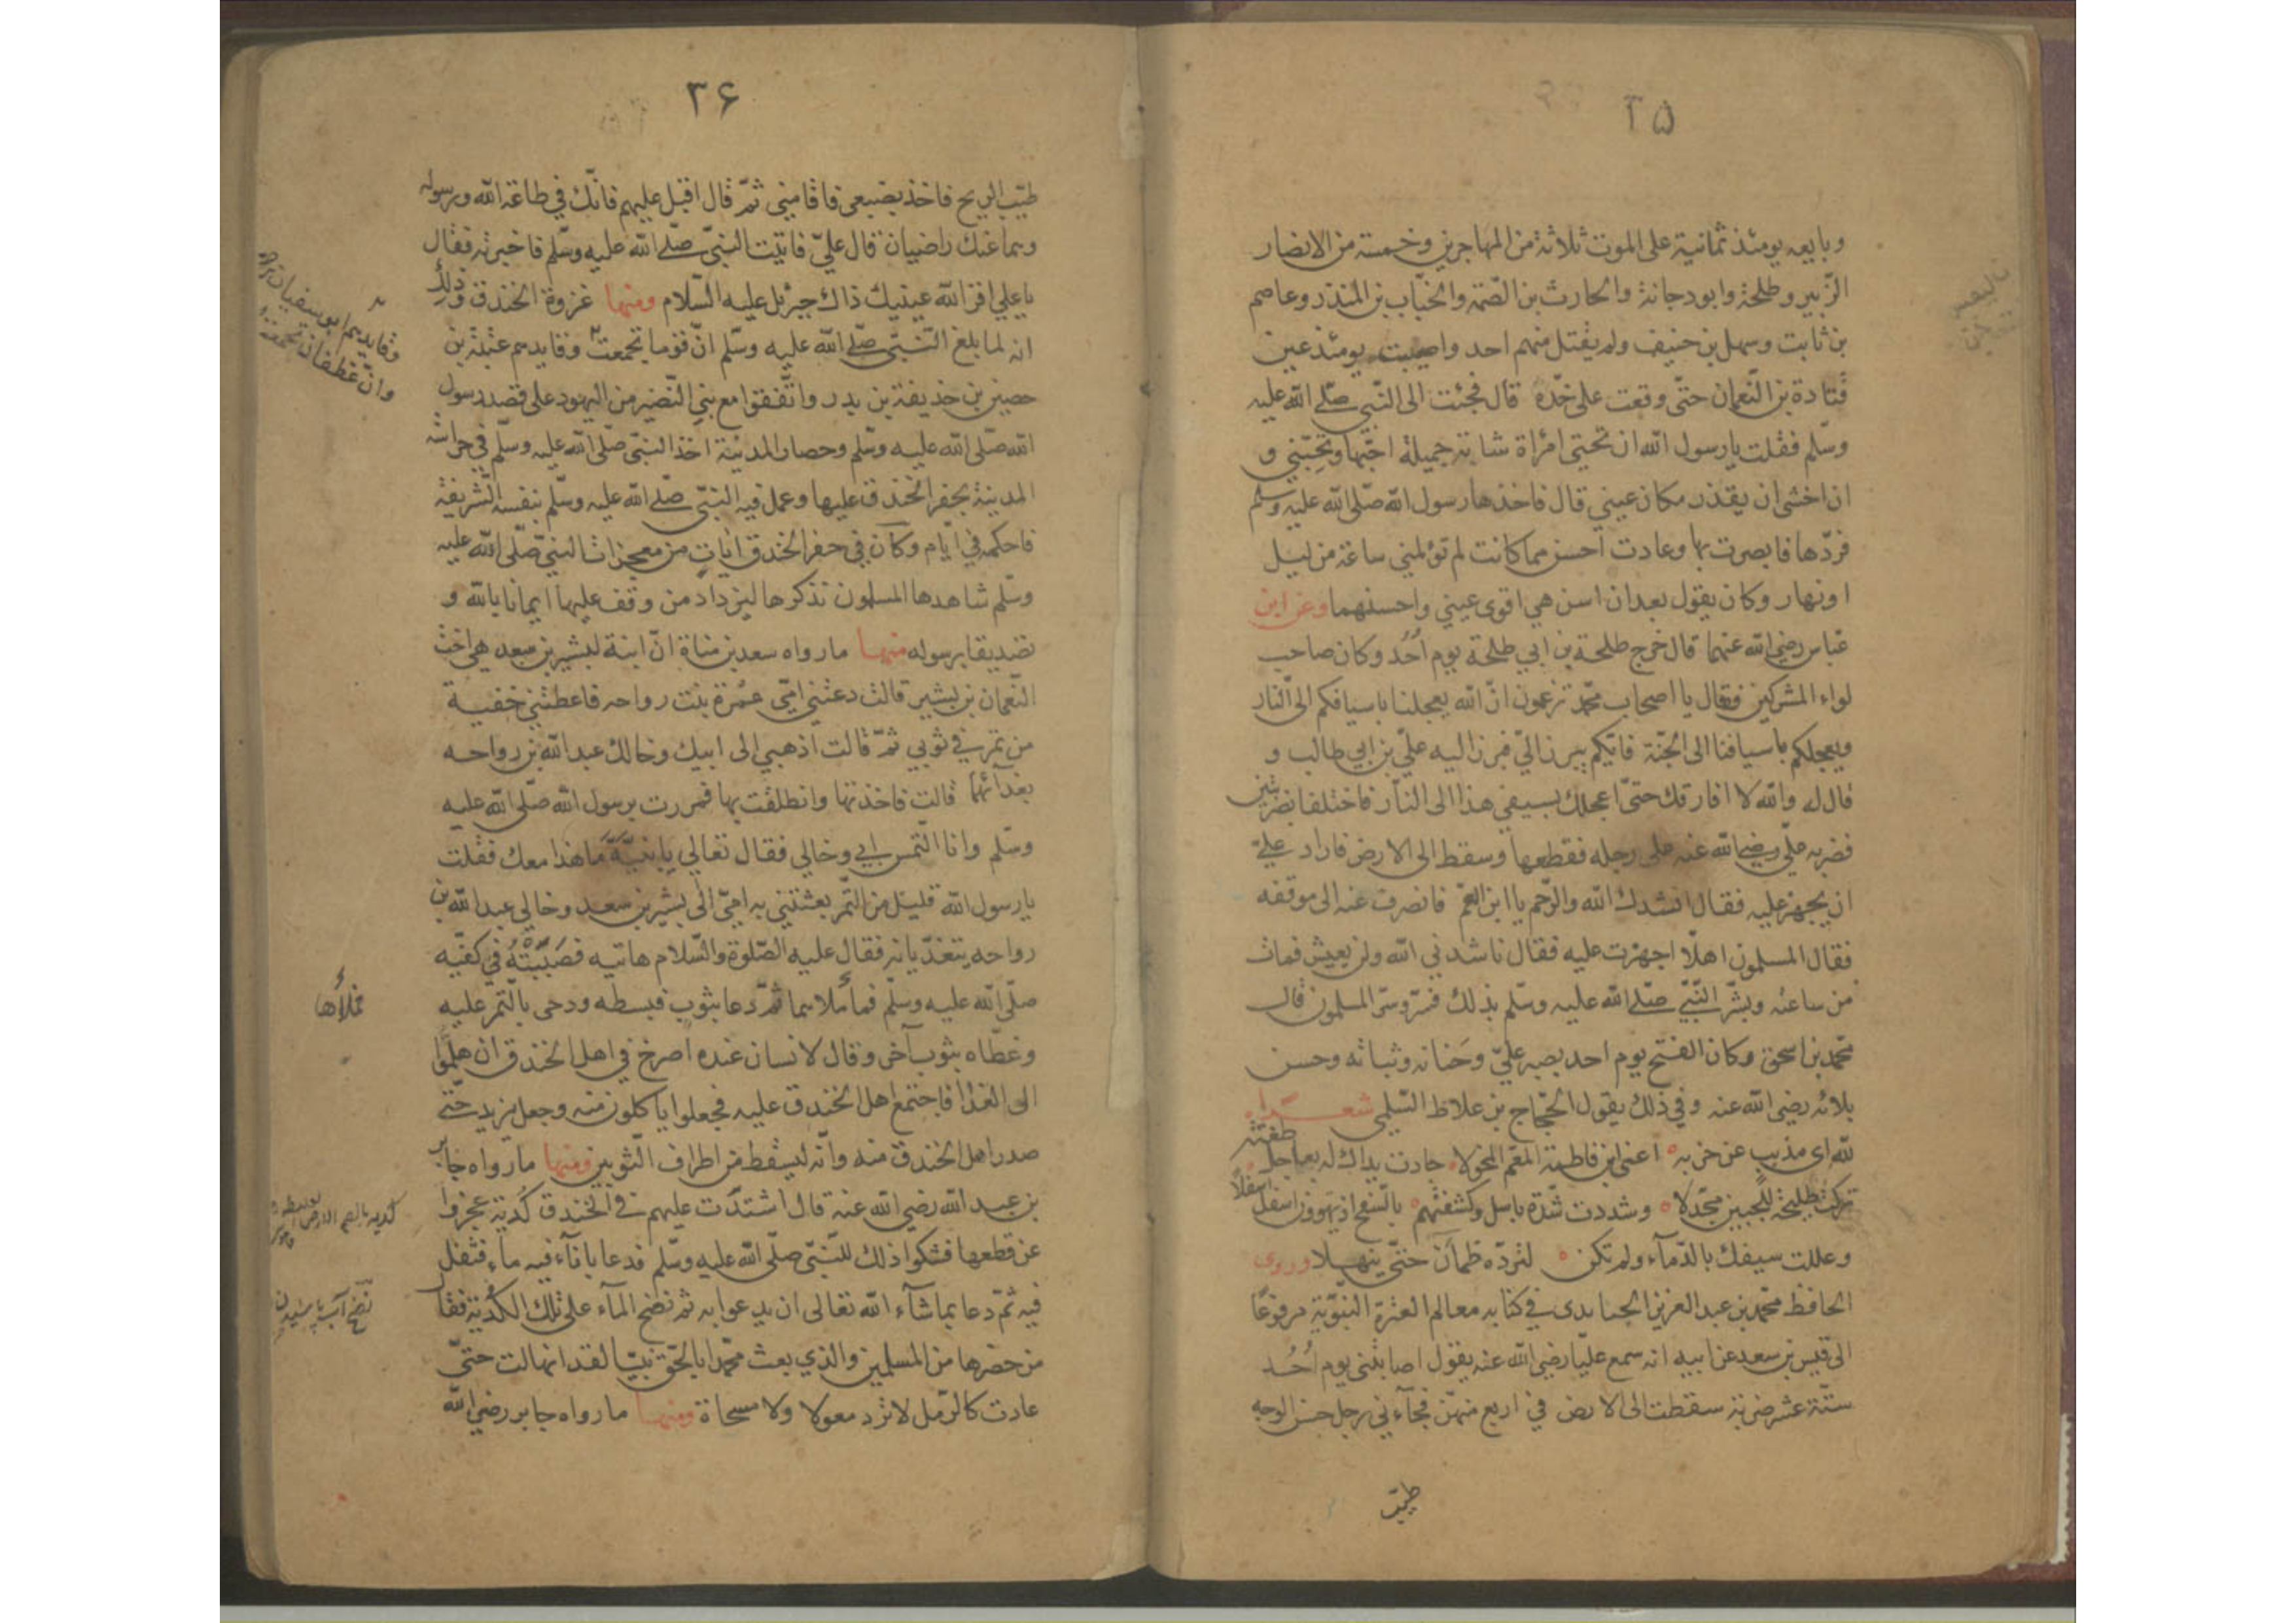 ۳۵
وبايعه يومئذ ثمانية على الموت ثلاثة من المهاجرين وخمسة من الانصار
الزّبير وطلحة وابو دجانة والحارث بن الصّمة والحبّاب بن المنذر وعاصم
بن ثابت وسهل بن حنيف ولم يقتل منهم احد واصيبت يومئذ عين
قتادة بن النّعمان حتّى وقعت على خدّه قال فجئت الى النّبي صلّى الله عليه
وسلّم فقلت يا رسول الله ان تحتى امراة شابة جميلة احبّها وتحبّني و
ان اخشى ان يقذر مكان عيني قال فاخذها رسول الله صلّى الله عليه وسلّم
فردّها فابصرت بها وعادت احسن مما كانت لم تؤلمني ساعة من ليل
او نهار وكان يقول بعد ان اسن هي اقوى عيني واحسنهما وعن ابن
عبّاس رضي الله عنهما قال خرج طلحة بن ابي طلحة يوم اُحُد وكان صاحب
لواء المشركين فقال يا اصحاب محمّد تزعمون انّ الله يعجلنا باسيافكم الى النّار
ويعجلكم باسيافنا الى الجنّة فايّكم يبرز الىّ فبرز اليه علىّ بن ابي طالب و
قال له والله لا افارقك حتّى اعجلك بسيفي هذا الى النّار فاختلفا بضربتين
فضربه علىّ رضي الله عنه على رجله فقطعها وسقط الى الارض فاراد علىّ
ان يجهز عليه فقال انشدك الله والرّحم يا ابن العمّ فانصرف عنه الى موقفه
فقال المسلمون اهلّا اجهزت عليه فقال ناشدني الله ولن يعيش فمات
من ساعته وبشّر النّبىّ صلّى الله عليه وسلّم بذلك فسرّ وسرّ المسلمون قال
محمّد بن اسحق وكان الفتح يوم احد بصبر علىّ وحَنانه وثباته وحسن
بلائه رضي الله عنه وفي ذلك يقول الحجّاج بن علاط السّلمي شعر
لله اى مذبب عن حزبه اعنى ابن فاطمة المعمّ المخولا جادت يداك له بعاجل طعنة
تركت طليحة للجبين مجدّلا وشددت شدّة باسل وكشفتهم بالسّفح اذ يهوون اسفل اسفلًا
وعللت سيفك بالدّمآء ولم تكن لتردّه ظمآن حتّى ينهلا وروى
الحافظ محمّد بن عبد العزيز الجنابدى في كتابه معالم العترة النّبويّة مرفوعًا
الى قيس بن سعد عن ابيه انه سمع عليّا رضي الله عنه يقول اصابتنى يوم اُحُد
ستّة عشر ضربة سقطت الى الارض في اربع منهنّ فجآءني رجل حسن الوجه
طيّب
۳۶
طيّب الريح فاخذ بضبعى فاقامني ثمّ قال اقبل عليهم فانّك في طاعة الله ورسوله
وهما عنك راضيان قال علىّ فاتيت النّبىّ صلّى الله عليه وسلّم فاخبرته فقال
يا على اقر الله عينيك ذاك جبرئل عليه السّلام ومنها غزوة الخندق وذلك
انه لما بلغ النّبىّ صلّى الله عليه وسلّم انّ قوما تجمعت وقايدهم عيينة بن
حصين بن حذيفة بن بدر واتّفقوا مع بني النّضير من اليهود على قصد رسول
الله صلّى الله عليه وسلّم وحصار المدينة اخذ النبىّ صلّى الله عليه وسلّم في حراسة
المدينة بحفر الخندق عليها وعمل فيه النبىّ صلّى الله عليه وسلّم بنفسه الشّريفة
فاحكمه في ايّام وكان في حفر الخندق ايات من معجزات النبىّ صلّى الله عليه
وسلّم شاهدها المسلمون نذكرها ليزداد من وقف عليها ايمانا بالله و
تصديقا برسوله منها ما رواه سعد بن مناة انّ ابنة لبشير بن سعد هى اخت
النّعمان بن بشير قالت دعتني امّى عمرة بنت رواحه فاعطتني حفية
من تمر في ثوبي ثمّ قالت اذهبي الى ابيك وخالك عبد الله بن رواحه
بغدائهما قالت فاخذتها وانطلقت بها فمررت برسول الله صلّى الله عليه
وسلّم وانا التمس ابي وخالي فقال تعالي يا بنيّة ما هذا معك فقلت
يا رسول الله قليل من التّمر بعثتني به امّى الى بشير بن سعد وخالي عبد الله بن
رواحه يتغدّيانه فقال عليه الصّلوة والسّلام هاتيه فصَبَبْتُهُ في كفّيه
صلّى الله عليه وسلّم فما ملأهما ثمّ دعا بثوب فبسطه ودحى بالتّمر عليه
وغطّاه بثوب آخر وقال لانسان عنده اصرخ في اهل الخندق ان هلمّوا
الى الغدا فاجتمع اهل الخندق عليه فجعلوا ياكلون منه وجعل يزيد حتّى
صدر اهل الخندق منه وانّه ليسقط من اطراف الثّوبين ومنها ما رواه جابر
بن عبد الله رضي الله عنه قال اشتدّت عليهم في الخندق كُدية عجزوا
عن قطعها فشكوا ذلك للنّبىّ صلّى الله عليه وسلّم فدعا باناء فيه ماء فتفل
فيه ثمّ دعا بما شآء الله تعالى ان يدعوا به ثم نضح المآء على تلك الكدية فقال
من حضرها من المسلمين والذي بعث محمّدا بالحقّ نبيّا لقد انهالت حتّى
عادت كالرّمل لا تردّ معولا ولا مسحاة ومنها ما رواه جابر رضي الله
وقايدهم ابو سفيان
وانّ غطفان تجمعت
فملأها
كديه بالضم الارض
نضح آب پاشيدن